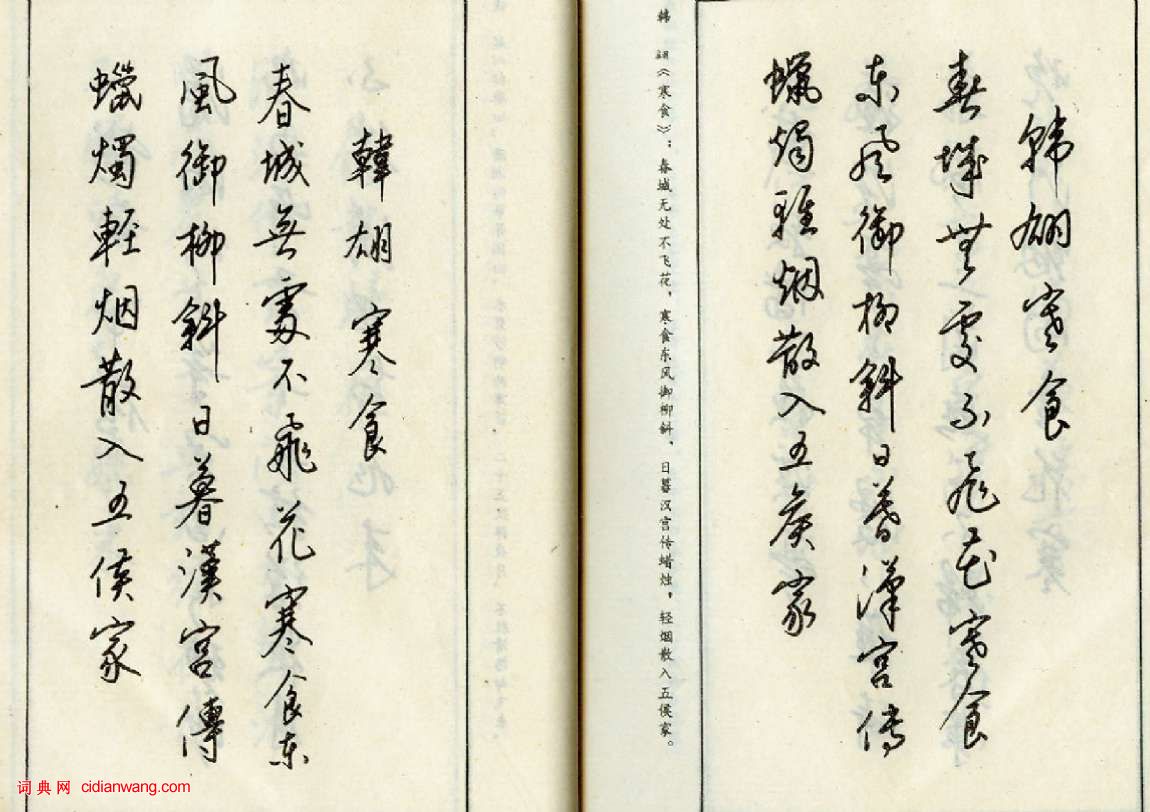 韓翃寒食
春城無處不飛花寒食
東風御柳斜日暮漢宮傳
蠟燭輕烟散入五侯家
韩 翃《寒食》：春城无处不飞花，寒食东风御柳斜，日暮汉宫传蜡烛，轻烟散入五侯家。
韓翃 寒食
春城無處不飛花寒食東
風御柳斜日暮漢宮傳
蠟燭輕烟散入五侯家
词典网 cidianwang.com